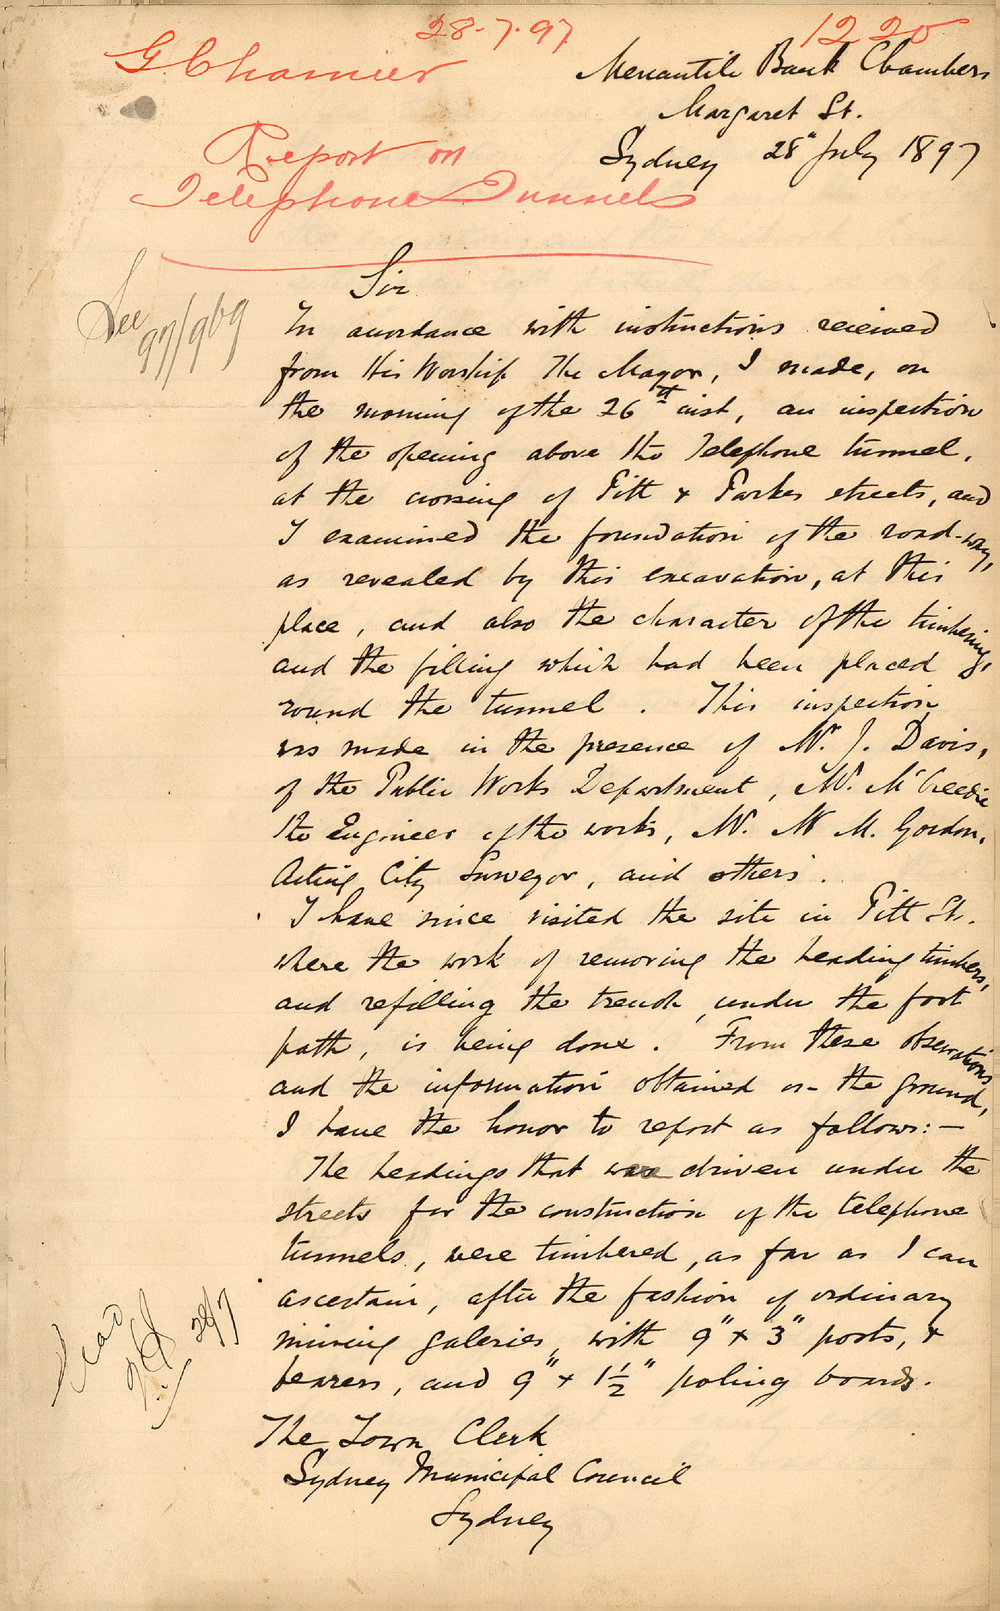 28.7.97
1220
G. Chamier
Mercantile Bank Chambers
Margaret St.
Sydney 28" July 1897
Report on
Telephone Tunnels
See
97/969
Sir
In accordance with instructions received
from His Worship The Mayor, I made, on
the morning of the 26th inst, an inspection
of the opening above the Telephone tunnel,
at the crossing of Pitt & Parker streets, and
I examined the foundation of the road-way,
as revealed by this excavation, at this
place, and also the character of the timbering,
and the filling which had been placed
round the tunnel. This inspection
was made in the presence of Mr. J. Davis,
of the Public Works Department, Mr. McCredie
the Engineer of the works, Mr. W M. Gordon,
Acting City Surveyor, and others.
I have since visited the site in Pitt St.
where the work of removing the heading timbers,
and refilling the trench, under the foot
path, is being done. From these observations
and the information obtained on the ground,
I have the honor to report as follows:-
The headings that was driven under the
streets for the construction of the telephone
tunnels, were timbered, as far as I can
ascertain, after the fashion of ordinary
mining galeries, with 9" x 3" posts, &
bearers, and 9" x 1½" poling boards.
The Town Clerk
Sydney Municipal Council
Sydney
Read
29/7